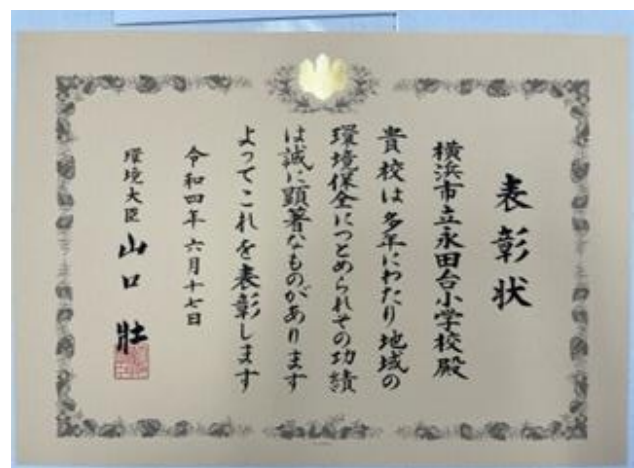 表彰状
横浜市立永田台小学校殿
貴校は多年にわたり地域の
環境保全につとめられその功績
は誠に顕著なものがあります
よってこれを表彰します
令和四年六月十七日
環境大臣 山口 壯